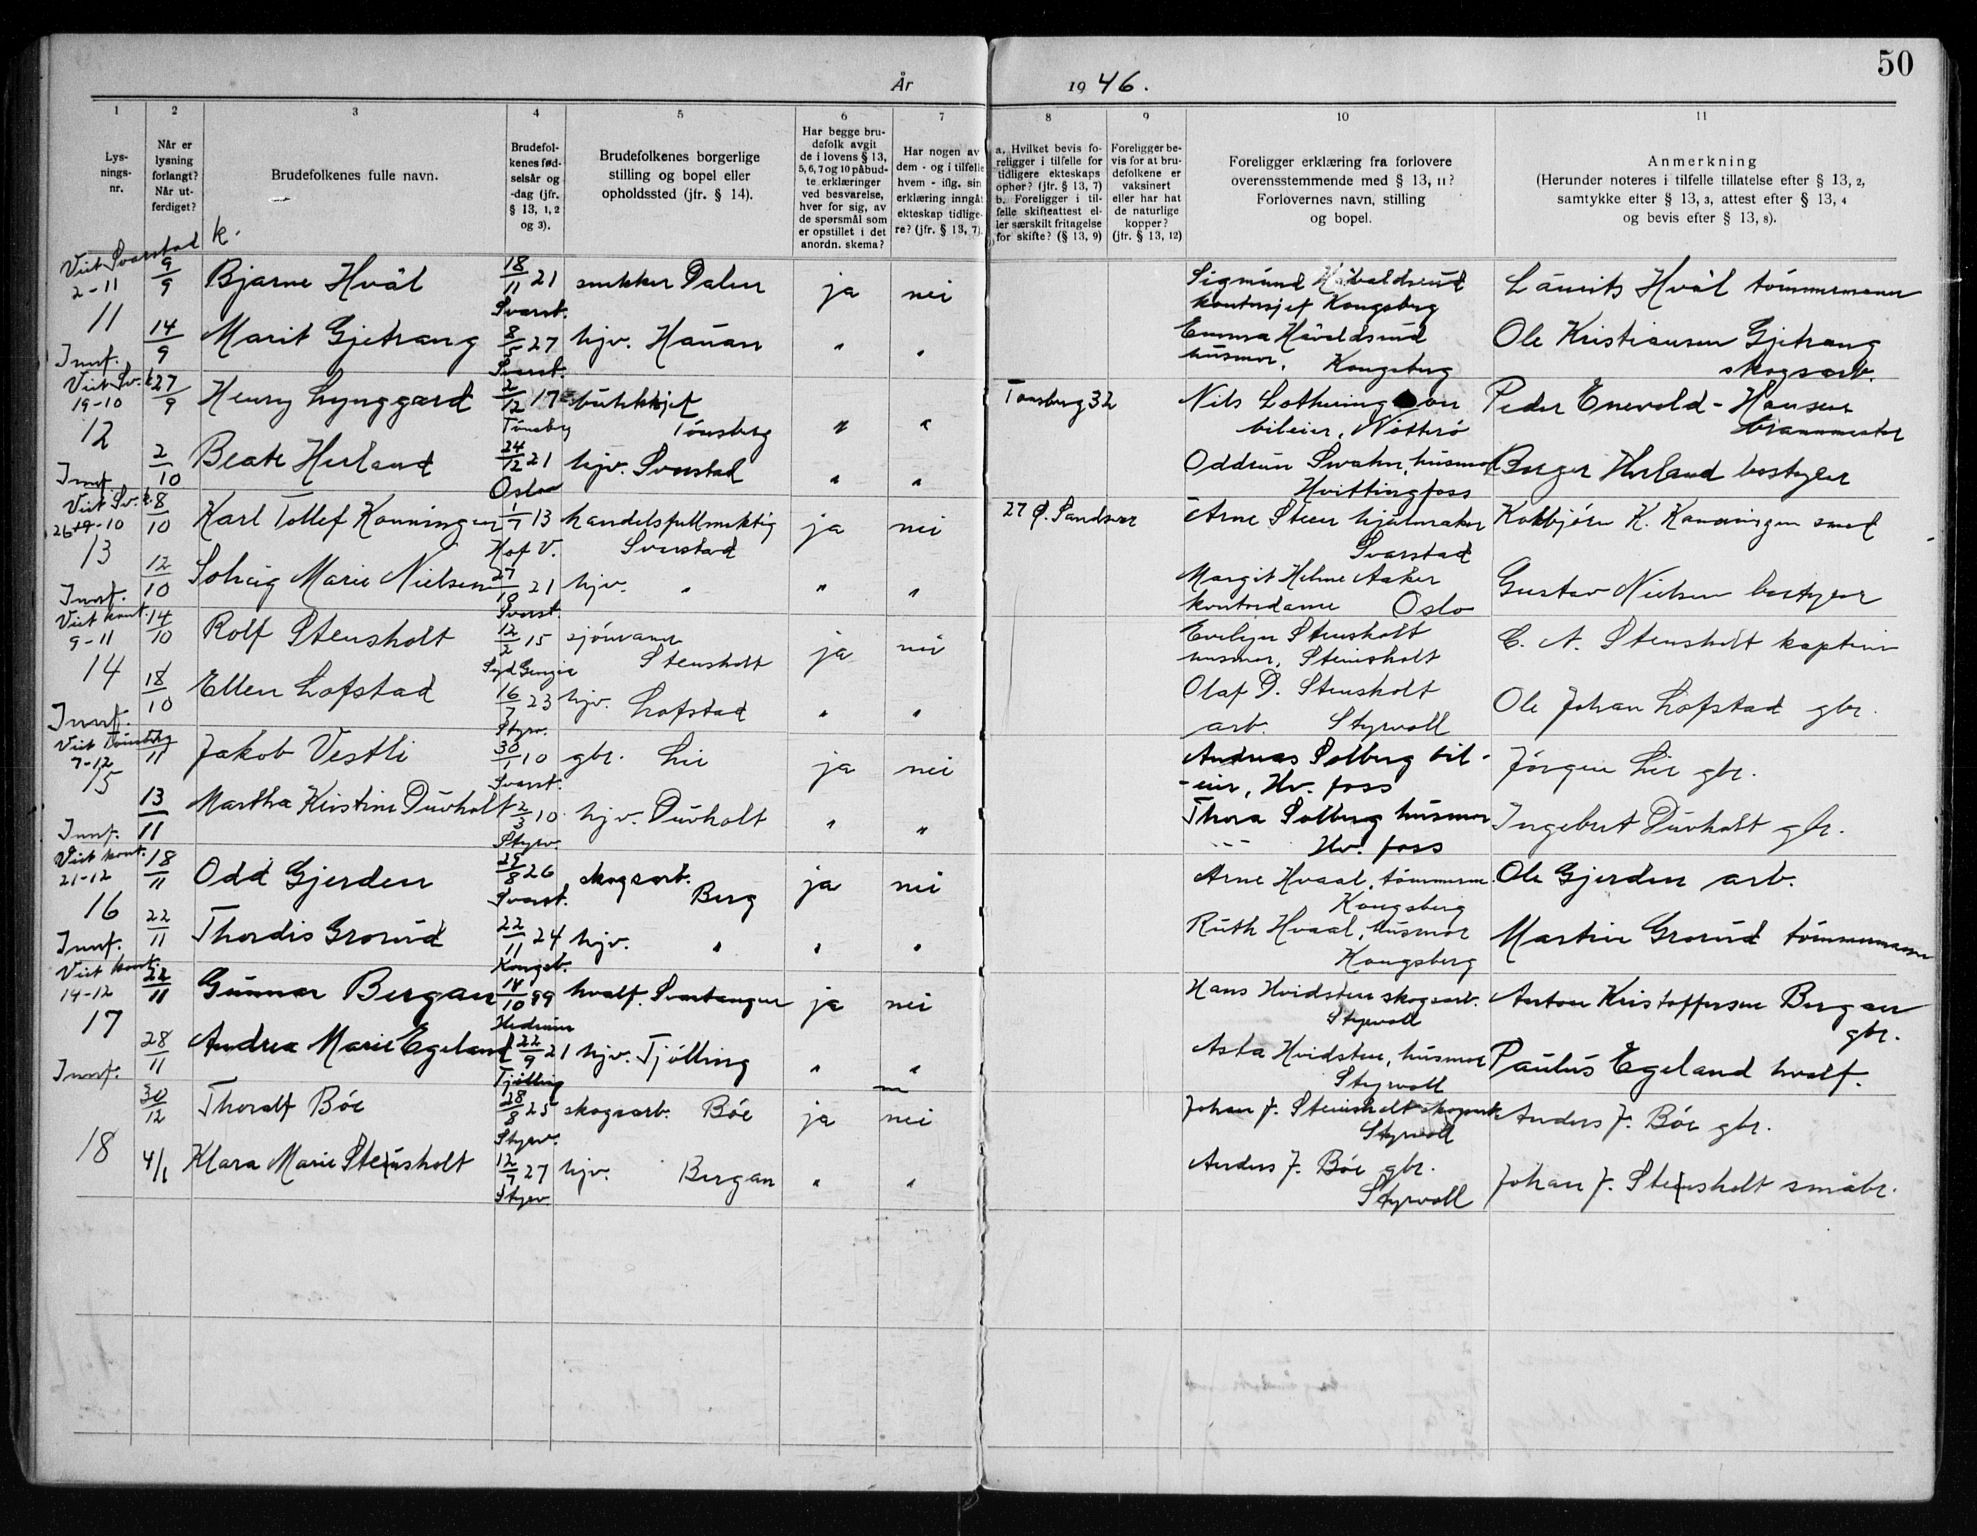 50
År 1946.
1 2 3 4 5 6 7 8 9 10 11
Lys-
nings-
nr.
Når er
lysning
forlangt?
Når ut-
ferdiget?
Brudefolkenes fulle navn.
Brudefol-
kenes fød-
selsår og
-dag (jfr.
§ 13, 1, 2
og 3).
Brudefolkenes borgerlige
stilling og bopel eller
opholdssted (jfr. § 14).
Har begge bru-
defolk avgit
de i lovens § 13,
5, 6, 7 og 10 påbud-
te erklæringer
ved besvarelse,
hver for sig, av
de spørsmål som
er opstillet i det
anordn. skema?
Har nogen av
dem - og i tilfelle
hvem - iflg. sin
erklæring inngåt
ekteskap tidlige-
re? (jfr. § 13, 7).
a. Hvilket bevis fo-
religger i tilfelle for
tidligere ekteskaps
ophør? (jfr. § 13, 7)
b. Foreligger i til-
felle skifteattest el-
ler særskilt fritagelse
for skifte? (§ 13, 9)
Foreligger be-
vis for at bru-
defolkene er
vaksinert
eller har hat
de naturlige
kopper?
(jfr. § 13, 12)
Foreligger erklæring fra forlovere
overensstemmende med § 13, 11?
Forlovernes navn, stilling
og bopel.
Anmerkning
(Herunder noteres i tilfelle tillatelse efter § 13, 2,
samtykke efter § 13, 3, attest efter § 13, 4
og bevis efter § 13, 8).
Viet Svarstad k.
2-11 9/9 Bjarne Hvål 18/11 21 snekker Dalen ja nei Sigmund Håvaldsrud Laurits Hvål tømmermann
Svarst. kontorsjef Kongsberg
11 14/9 Marit Gjetrang 8/5 27 hjv. Hauan " " Emma Håvaldsrud Ole Kristiansen Gjetrang
Innf. Svarst. husmor, Kongsberg skogsarb.
Viet Sv. k. 27/9 Henry Lynggard 2/12 17 butikksjef " " Tønsberg 32 Nils Lothrington Peder Enevold-Hansen
19-10 Tønsberg Tønsberg bileier, Nøtterø brannmester
12 2/10 Beate Herland 24/12 21 hjv. Svarstad " " Oddrun Swahn, husmor Borger Herland bestyrer
Innf. Oslo Hvittingfoss
Viet Sv. k. 8/10 Karl Tollef Konningen 1/7 13 handelsfullmektig ja nei 27 Ø. Sandsvær Arne Steen hjulmaker Kolbjørn K. Konningen smed
26-10 Hof V. Svarstad Svarstad
13 12/10 Solveig Marie Nielsen 27/10 21 hjv. " " " Margit Helene Aaker Gustav Nielsen bestyrer
Innf. Svarst. kontordame Oslo
Viet kont. 14/10 Rolf Stensholt 12/2 15 sjømann ja nei Evelyn Stensholt C. A. Stensholt kaptein
9-11 Syd Georgia Stensholt husmor, Steinsholt
14 18/10 Ellen Lofstad 16/7 23 hjv. Lofstad " " Olaf D. Stensholt Ole Johan Lofstad gbr.
Innf. Styrv. arb. Styrvoll
Viet Tønsberg 11 Jakob Vestli 30/1 10 gbr. Lie ja nei Andreas Solberg bil- Jørgen Lie gbr.
7-12 Svarst. -eier, Hv. foss
15 13/11 Martha Kirstine Duvholt 2/3 10 hjv. Duvholt " " Thora Solberg husmor Ingebret Duvholt gbr.
Innf. Styrv. Hv. foss
Viet kont. 18/11 Odd Gjerden 29/8 26 skogsarb. Berg ja nei Arne Hvaal, tømmerm. Ole Gjerden arb.
21-12 Svarst. Kongsberg
16 22/11 Thordis Grorud 22/11 24 hjv. " " " Ruth Hvaal, husmor Martin Grorud tømmermann
Innf. Kongsb. Kongsberg
Viet kont. 22/11 Gunnar Bergan 14/10 99 hvalf. Svartangen ja nei Hans Hvidsten skogsarb. Anton Kristoffersen Bergan
14-12 Hedrum Styrvoll gbr.
17 28/11 Andrea Marie Egeland 22/9 21 hjv. Tjølling " " Asta Hvidsten, husmor Paulus Egeland hvalf.
Innf. Tjølling Styrvoll
30/12 Thoralf Bøe 28/8 25 skogsarb. Bøe ja nei Johan J. Steinsholt skogsarb. Anders J. Bøe gbr.
Styrv. Styrvoll
18 4/1 Klara Marie Steinsholt 12/9 27 hjv. Bergan " " Anders J. Bøe gbr. Johan J. Steinsholt småbr.
Styrv. Styrvoll